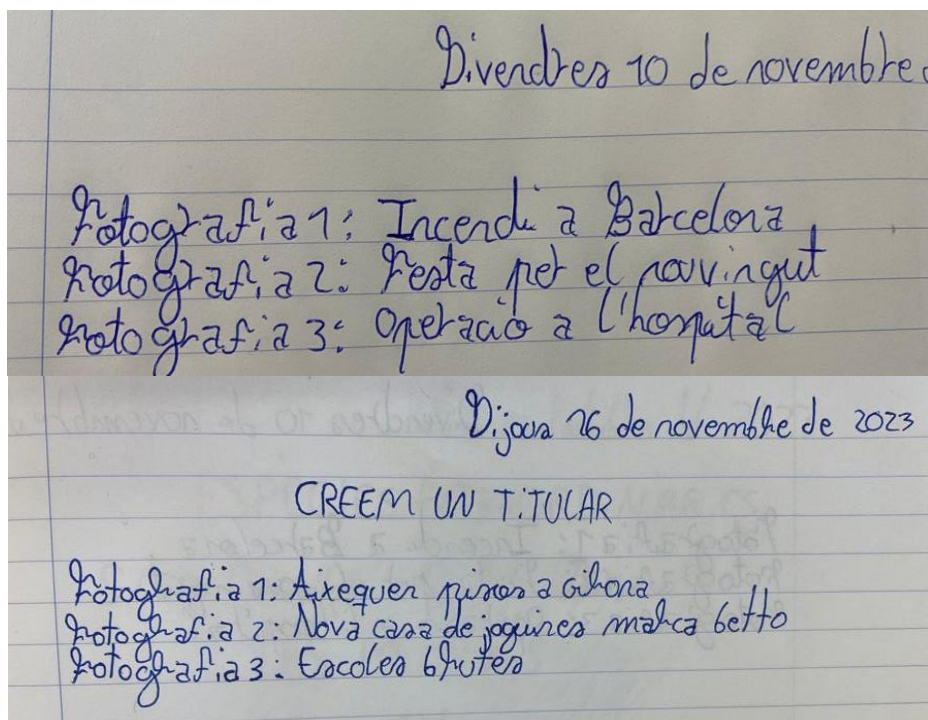 Divendres 10 de novembre.
Fotografia 1: Incendi a Barcelona
Fotografia 2: Festa per el nouvingut
Fotografia 3: Operació a l'hospital
Dijous 16 de novembre de 2023
CREEM UN TITULAR
Fotografia 1: Aixequen pisos a Girona
Fotografia 2: Nova casa de joguines marca betto
Fotografia 3: Escoles brutes